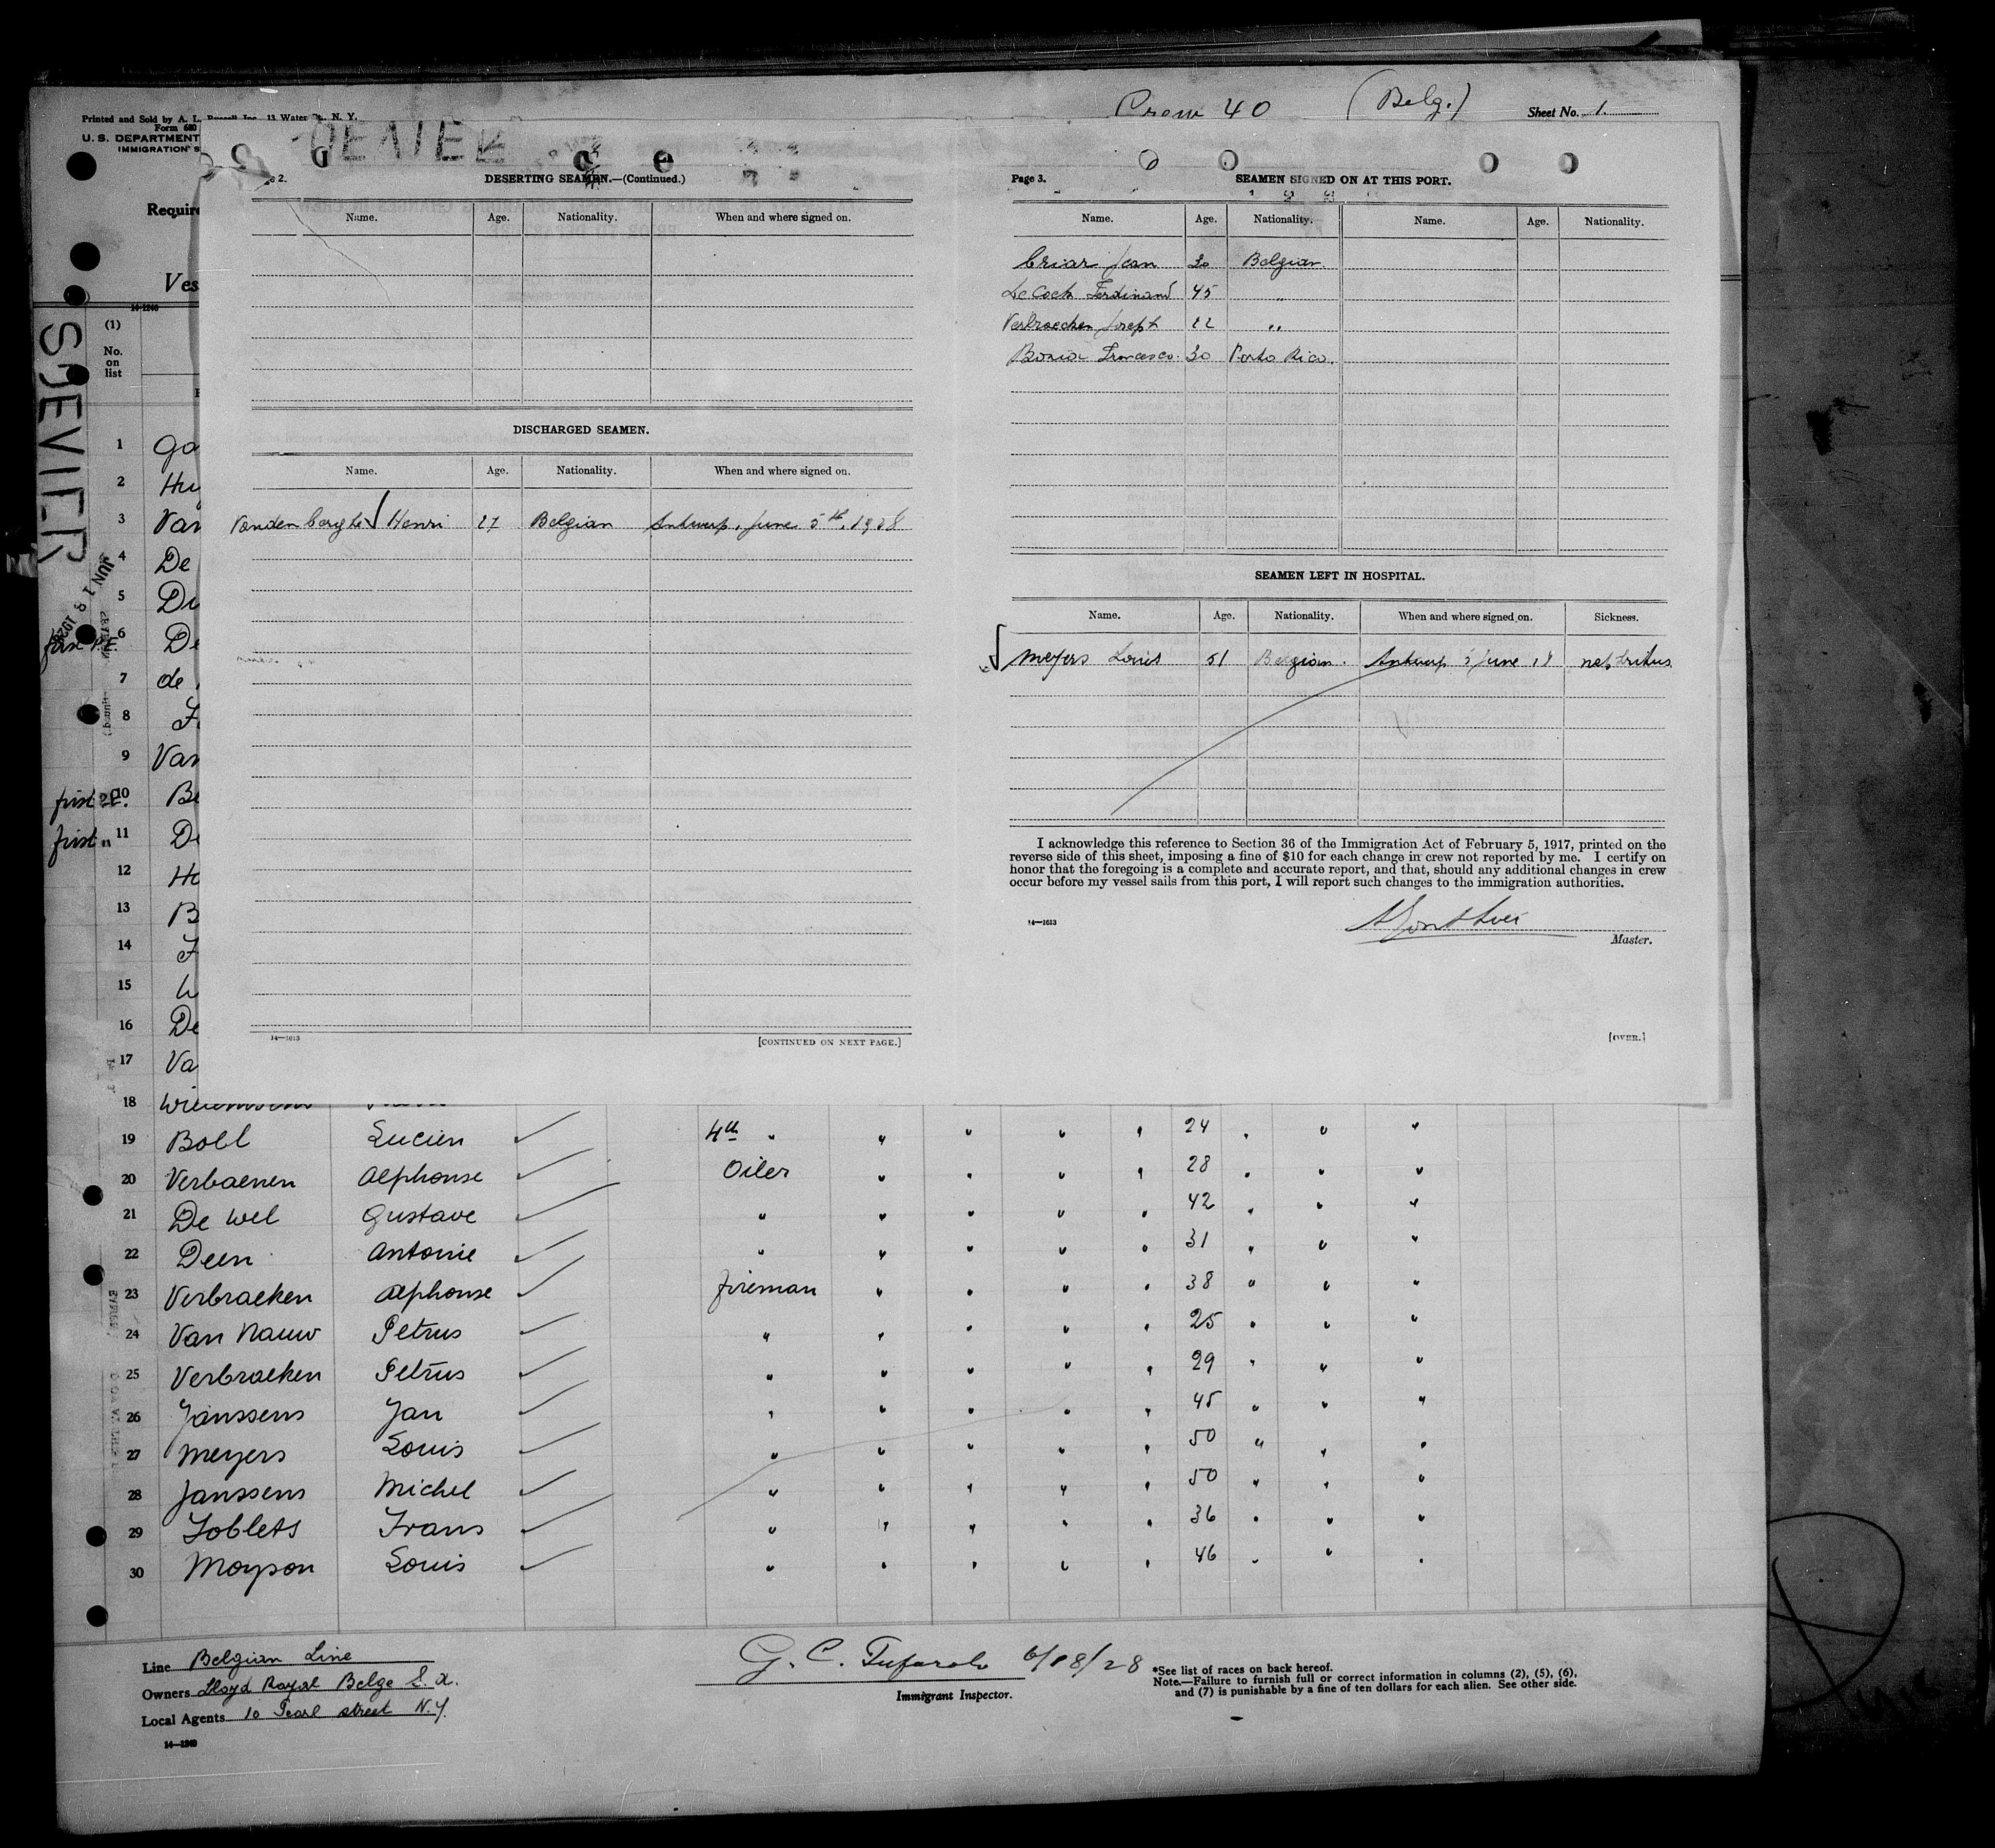 Crew 40 (Belg.) Sheet No. 1.
Printed and Sold by A. L. Inc., 13 Water N. Y.
Form 680
U. S. DEPARTMENT
IMMIGRATION S
Require
Ves
14-1240
(1)
No.
on
list
SEVIER
JUN 18 1928
1 Go
2 Hu
3 Van
4 De
5 Du
6 De
7 de
8 F
9 Van
first 10 Be
first " 11 De
12 Ho
13 B
14 F
15
16 De
17 Va
Page 2.
DESERTING SEAMEN.—(Continued.)
Name. Age. Nationality. When and where signed on.
DISCHARGED SEAMEN.
Name. Age. Nationality. When and where signed on.
Vandenberghe Henri 27 Belgian Antwerp, June 5th, 1928
14—1613 [CONTINUED ON NEXT PAGE.]
Page 3. SEAMEN SIGNED ON AT THIS PORT.
Name. Age. Nationality. Name. Age. Nationality.
Criar Jean 30 Belgian
De Cock Ferdinand 45 "
Verbraecken Joseph 22 "
Francesco 30 Porto Rico.
SEAMEN LEFT IN HOSPITAL.
Name. Age. Nationality. When and where signed on. Sickness.
Meyers Louis 51 Belgian. Antwerp 5 June
I acknowledge this reference to Section 36 of the Immigration Act of February 5, 1917, printed on the
reverse side of this sheet, imposing a fine of $10 for each change in crew not reported by me. I certify on
honor that the foregoing is a complete and accurate report, and that, should any additional changes in crew
occur before my vessel sails from this port, I will report such changes to the immigration authorities.
14—1613
Master.
[OVER.]
18 Willemsens
19 Boll Lucien 4th " " " " " 24 " " "
20 Verbaenen Alphonse Oiler " " " " 28 " " "
21 De Wel Gustave " " " " " 42 " " "
22 Deen Antonie " " " " " 31 " " "
23 Verbraeken Alphonse fireman " " " " 38 " " "
24 Van Nauw Petrus " " " " " 25 " " "
25 Verbraeken Petrus " " " " " 29 " " "
26 Janssens Jan " " " " " 45 " " "
27 Meyers Louis " " " " " 50 " " "
28 Janssens Michel " " " " " 50 " " "
29 Joblets Frans " " " " " 36 " " "
30 Moyson Louis " " " " " 46 " " "
Line Belgian Line
Owners Lloyd Royal Belge S. A.
Local Agents 10 Pearl street N.Y.
14—1240
G. C. Tufarolo 6/18/28
Immigrant Inspector.
*See list of races on back hereof.
Note.—Failure to furnish full or correct information in columns (2), (5), (6),
and (7) is punishable by a fine of ten dollars for each alien. See other side.